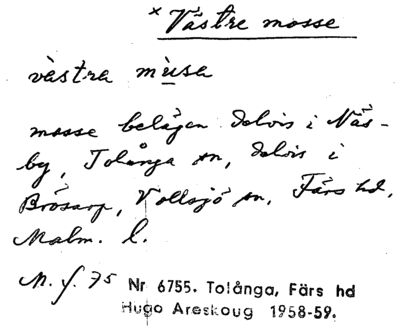 × Västre mosse
västra musa
mosse belägen delvis i Näs-
by, Tolånga sn, delvis i
Brösarp, Vollsjö sn, Färs hd,
Malm. l.
M. f. 75
Nr 6755. Tolånga, Färs hd
Hugo Areskoug 1958-59.